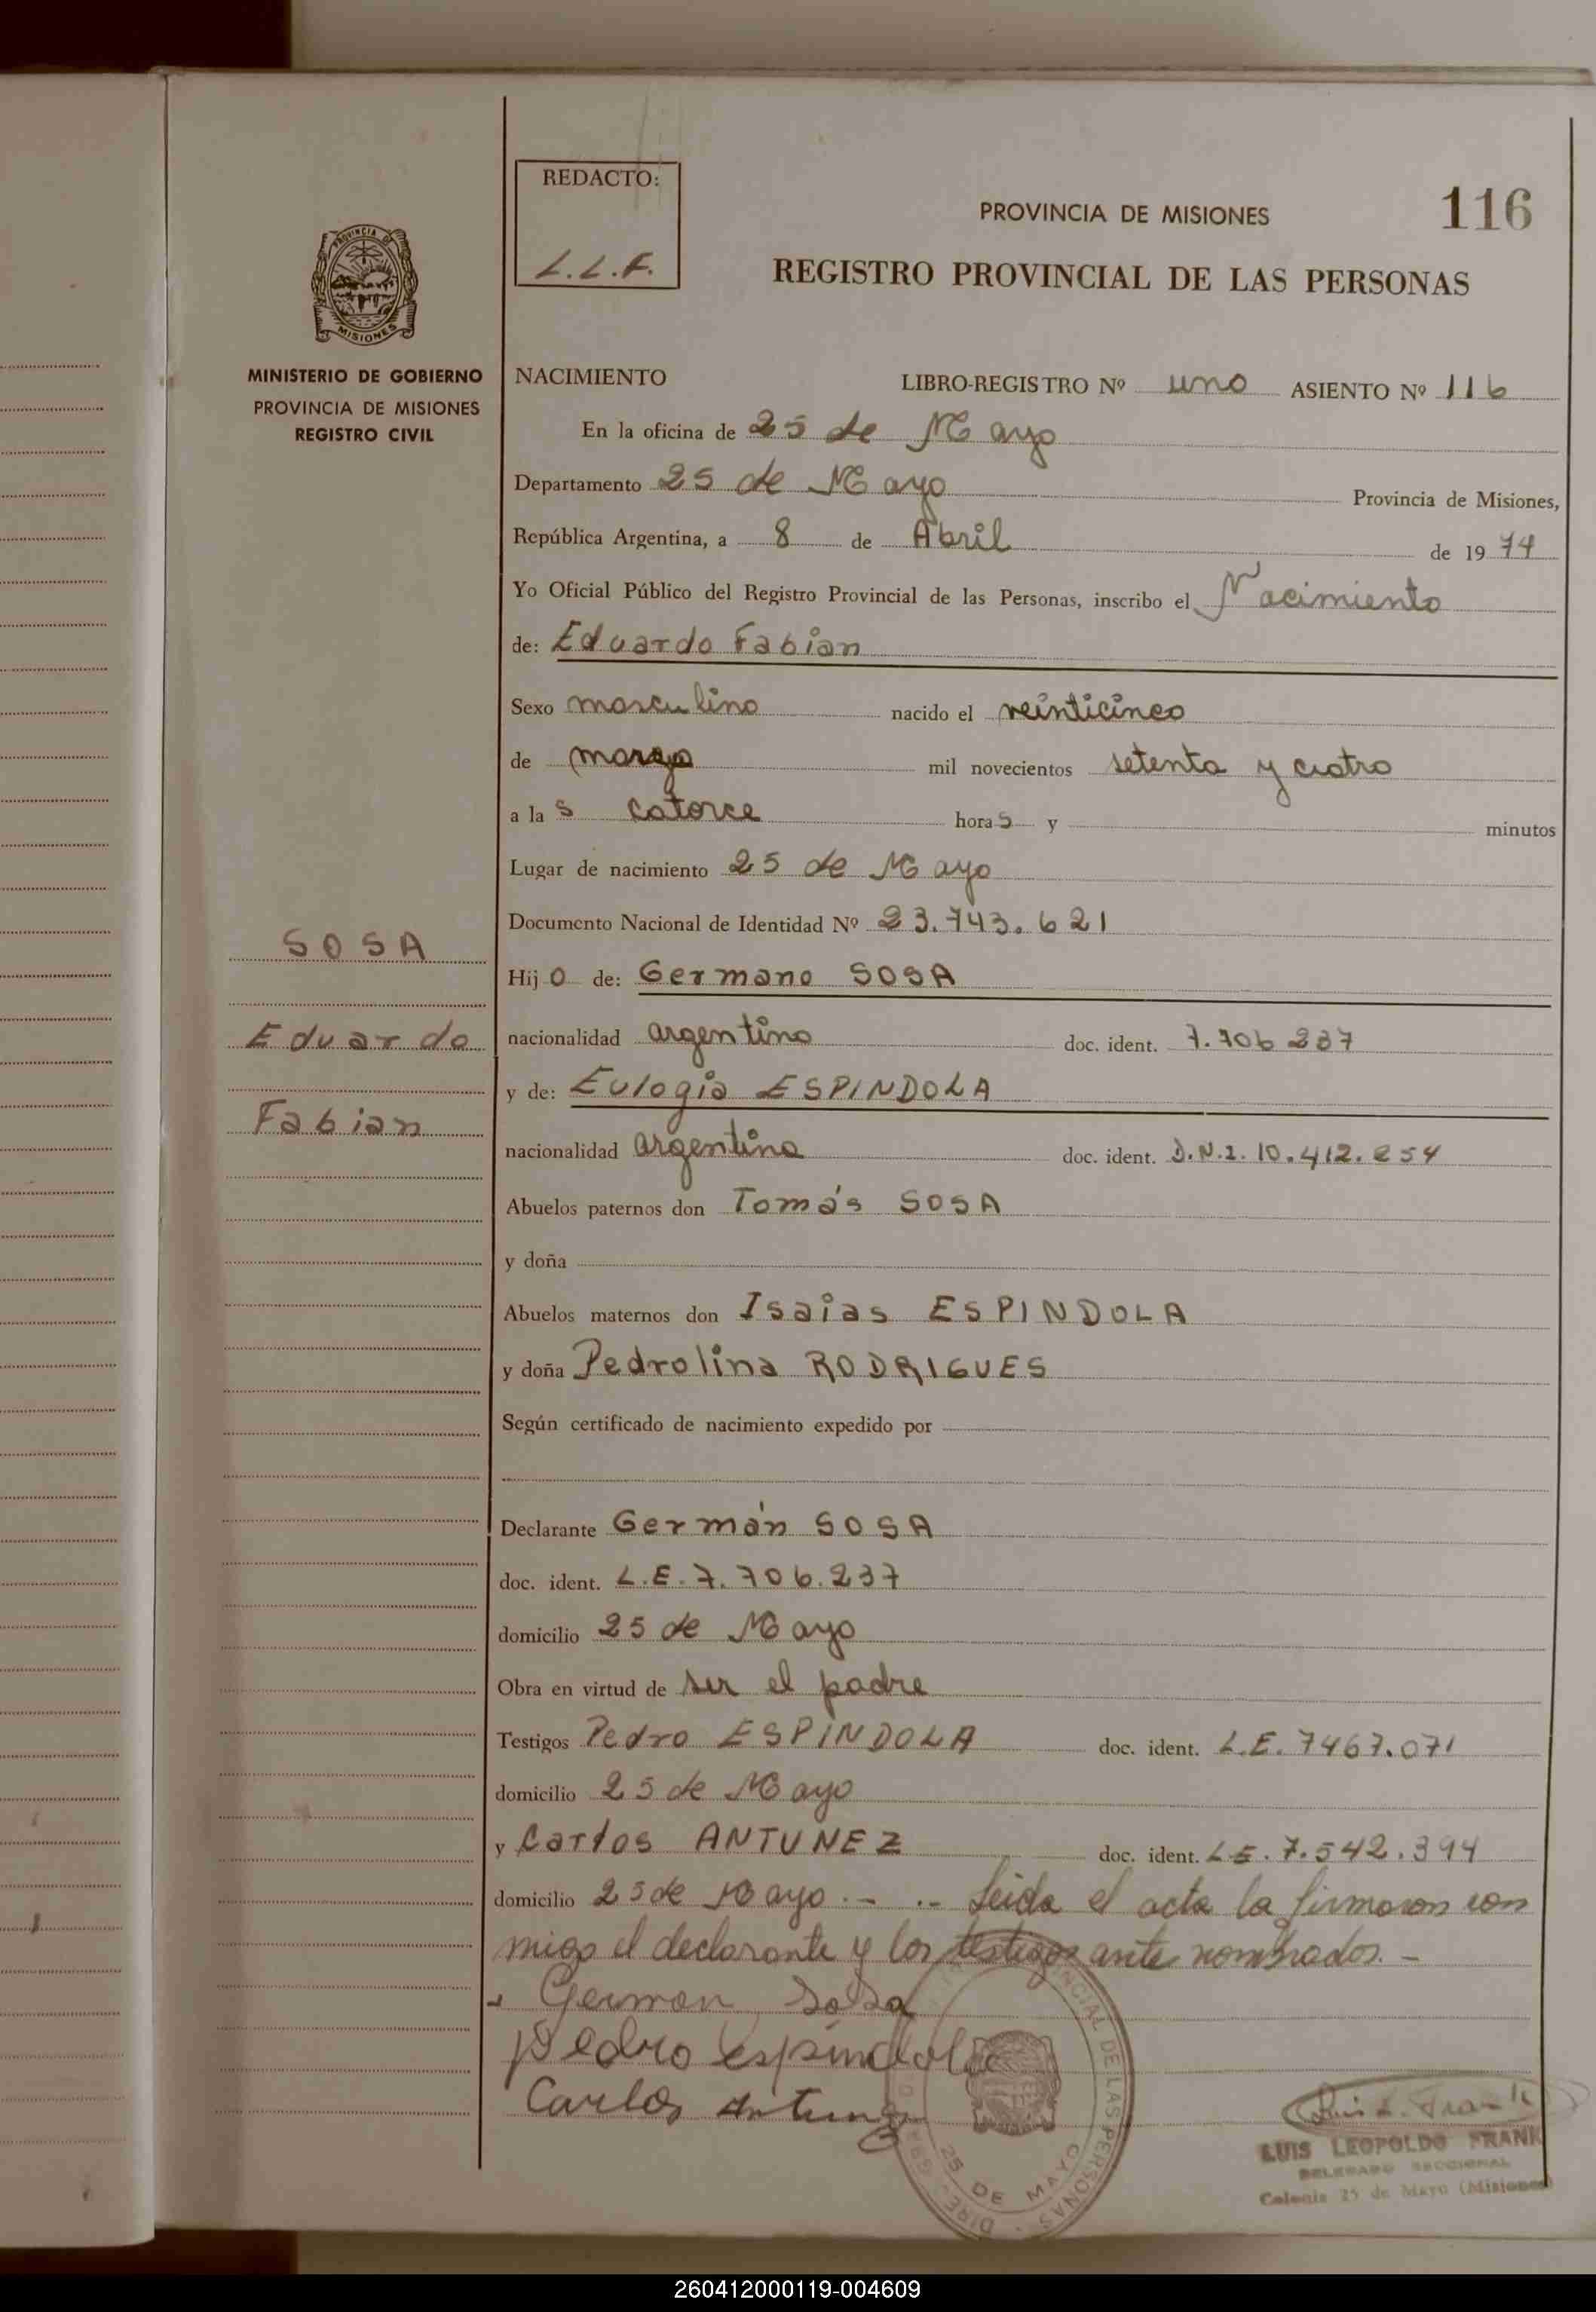 REDACTO:
L.L.F.
PROVINCIA DE MISIONES
116
REGISTRO PROVINCIAL DE LAS PERSONAS
PROVINCIA DE
MISIONES
MINISTERIO DE GOBIERNO
PROVINCIA DE MISIONES
REGISTRO CIVIL
NACIMIENTO LIBRO-REGISTRO Nº uno ASIENTO Nº 116
En la oficina de 25 de Mayo
Departamento 25 de Mayo Provincia de Misiones,
República Argentina, a 8 de Abril de 19 74
Yo Oficial Público del Registro Provincial de las Personas, inscribo el Nacimiento
de: Eduardo Fabian
Sexo masculino nacido el veinticinco
de marzo mil novecientos setenta y cuatro
a las catorce horas y minutos
Lugar de nacimiento 25 de Mayo
Documento Nacional de Identidad Nº 23.743.621
SOSA
Eduardo
Fabian
Hijo de: Germano SOSA
nacionalidad argentino doc. ident. 7.706 237
y de: Eulogia ESPINDOLA
nacionalidad argentina doc. ident. D.N.I. 10.412.254
Abuelos paternos don Tomás SOSA
y doña
Abuelos maternos don Isaias ESPINDOLA
y doña Pedrolina RODRIGUES
Según certificado de nacimiento expedido por
Declarante Germán SOSA
doc. ident. L.E.7.706.237
domicilio 25 de Mayo
Obra en virtud de ser el padre
Testigos Pedro ESPINDOLA doc. ident. L.E. 7467.071
domicilio 25 de Mayo
y Carlos ANTUNEZ doc. ident. L E. 7.542.394
domicilio 25 de Mayo.- .. Leida el acta la firmaron con
migo el declarante y los testigos ante nombrados.-
German Sosa
Pedro espindola
Carlos Antunez
25 DE MAYO
Luis L. Frank
LUIS LEOPOLDO FRANK
DELEGADO SECCIONAL
Colonia 25 de Mayo (Misiones)
260412000119-004609